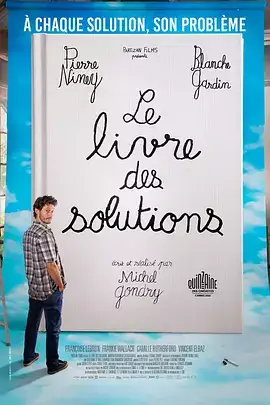 À CHAQUE SOLUTION, SON PROBLÈME
PARTIZAN FILMS
présente
Pierre Niney
Blanche Gardin
Le
livre
des
solutions
écrit et réalisé par
Michel
Gondry
QUINZAINE
DES CINÉASTES
FRANÇOISE LEBRUN FRANKIE WALLACH CAMILLE RUTHERFORD VINCENT ELBAZ